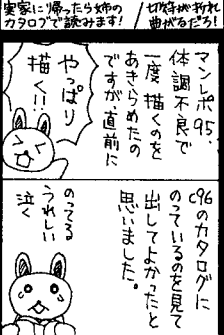 切符が折れ
曲がるだろ!
実家に帰ったら姉の
カタログで読みます!
マンレポ95、
体調不良で
一度描くのを
あきらめたの
ですが、直前に
やっぱり
描く!!
C96のカタログに
のっているのを見て
出してよかったと
思いました。
のってる
うれしい
泣く